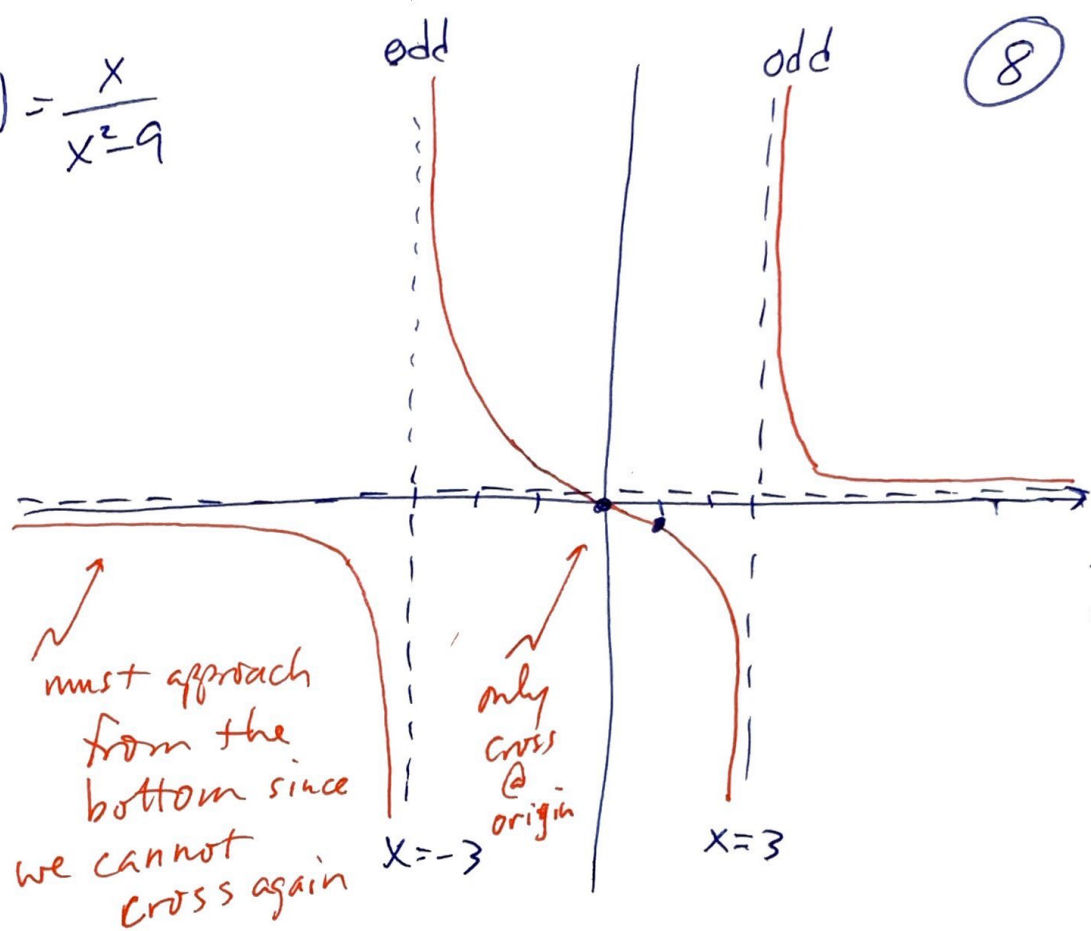 odd
odd
8
) = x / x²-9
must approach
from the
bottom since
we cannot
cross again
only
cross
@
origin
x=-3
x=3